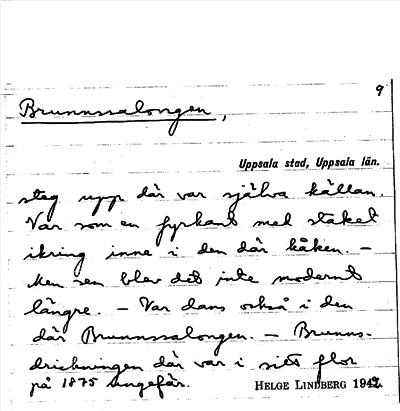 9
Brunnssalongen,
Uppsala stad, Uppsala län.
steg upp där var själva källan.
Var som en fyrkant med staket
ikring inne i den där kåken. –
Men sen blev det inte modernt
längre. – Var dans också i den
där Brunnssalongen. – Brunns-
drickningen där var i sitt flor
på 1875 ungefär. HELGE LINDBERG 1942.